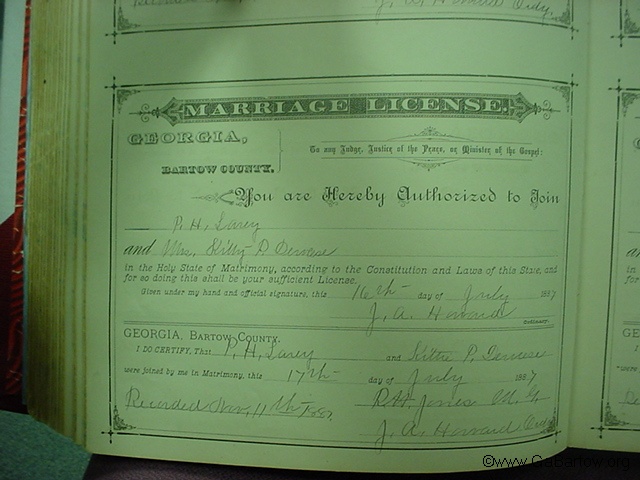 J. A. Howard Ordy.
MARRIAGE LICENSE.
GEORGIA,
BARTOW COUNTY.
To any Judge, Justice of the Peace, or Minister of the Gospel:
You are Hereby Authorized to Join
P. H. Larey
and Mrs. Kitty P. Dervase
in the Holy State of Matrimony, according to the Constitution and Laws of this State, and
for so doing this shall be your sufficient License.
Given under my hand and official signature, this 16th day of July 1887
J. A. Howard
Ordinary.
GEORGIA, BARTOW COUNTY.
I DO CERTIFY, That P. H. Larey and Kittie P. Dervase
were joined by me in Matrimony, this 17th day of July 1887
Recorded Nov. 11th 1887. R. H. Jones M. G.
J. A. Howard Ordy
©www.GaBartow.org